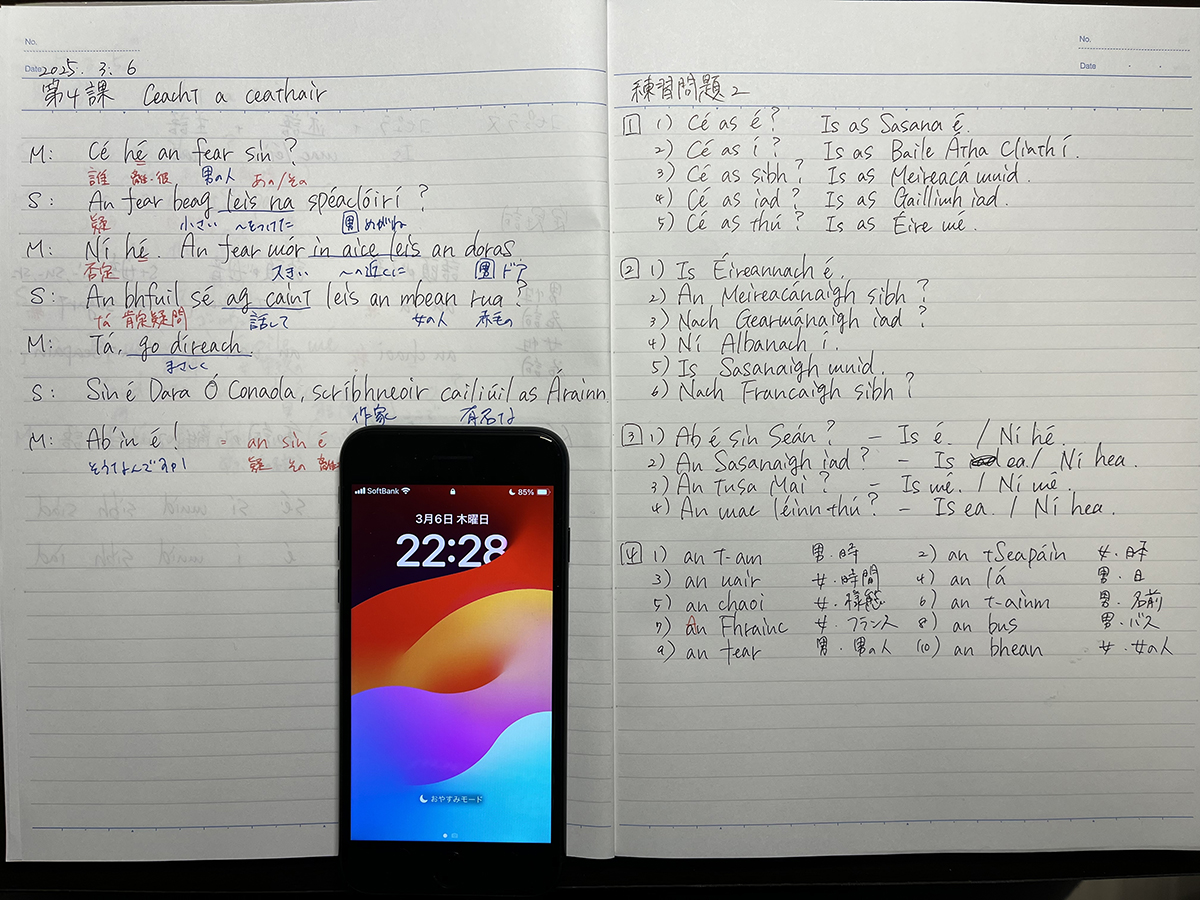 No.
Date 2025. 3. 6
第4課 Ceacht a ceathair
M: Cé hé an fear sin?
誰 離・彼 男の人 あの/その
S: An fear beag leis na spéaclóirí?
疑 小さい 〜をつけた 男 めがね
M: Ní hé. An fear mór in aice leis an doras.
否定 大きい 〜の近くに 男 ドア
S: An bhfuil sé ag caint leis an mbean rua?
tá 肯定疑問 話して 女の人 赤毛の
M: Tá, go díreach.
まさしく
S: Sin é Dara Ó Conaola, scríbhneoir cailiúil as Árainn
作家 有名な
M: Ab'in é! = an sin é
そうなんですか! 疑 その 離
SoftBank 85%
3月6日 木曜日
22:28
おやすみモード
No.
Date
練習問題2
1 1) Cé as é? Is as Sasana é.
2) Cé as í? Is as Baile Átha Cliath í.
3) Cé as sibh? Is as Meireacá muid.
4) Cé as iad? Is as Gaillimh iad.
5) Cé as thú? Is as Éire mé.
2 1) Is Éireannach é.
2) An Meireacánaigh sibh?
3) Nach Gearmánaigh iad?
4) Ní Albanach í.
5) Is Sasanaigh muid.
6) Nach Francaigh sibh?
3 1) Ab é sin Seán? – Is é. / Ní hé.
2) An Sasanaigh iad? – Is ea. / Ní hea.
3) An tusa Mai? – Is mé. / Ní mé.
4) An mac léinn thú? – Is ea. / Ní hea.
4 1) an t-am 男・時 2) an tSeapáin 女・日本
3) an uair 女・時間 4) an lá 男・日
5) an chaoi 女・様態 6) an t-ainm 男・名前
7) An Fhrainc 女・フランス 8) an bus 男・バス
9) an fear 男・男の人 10) an bhean 女・女の人